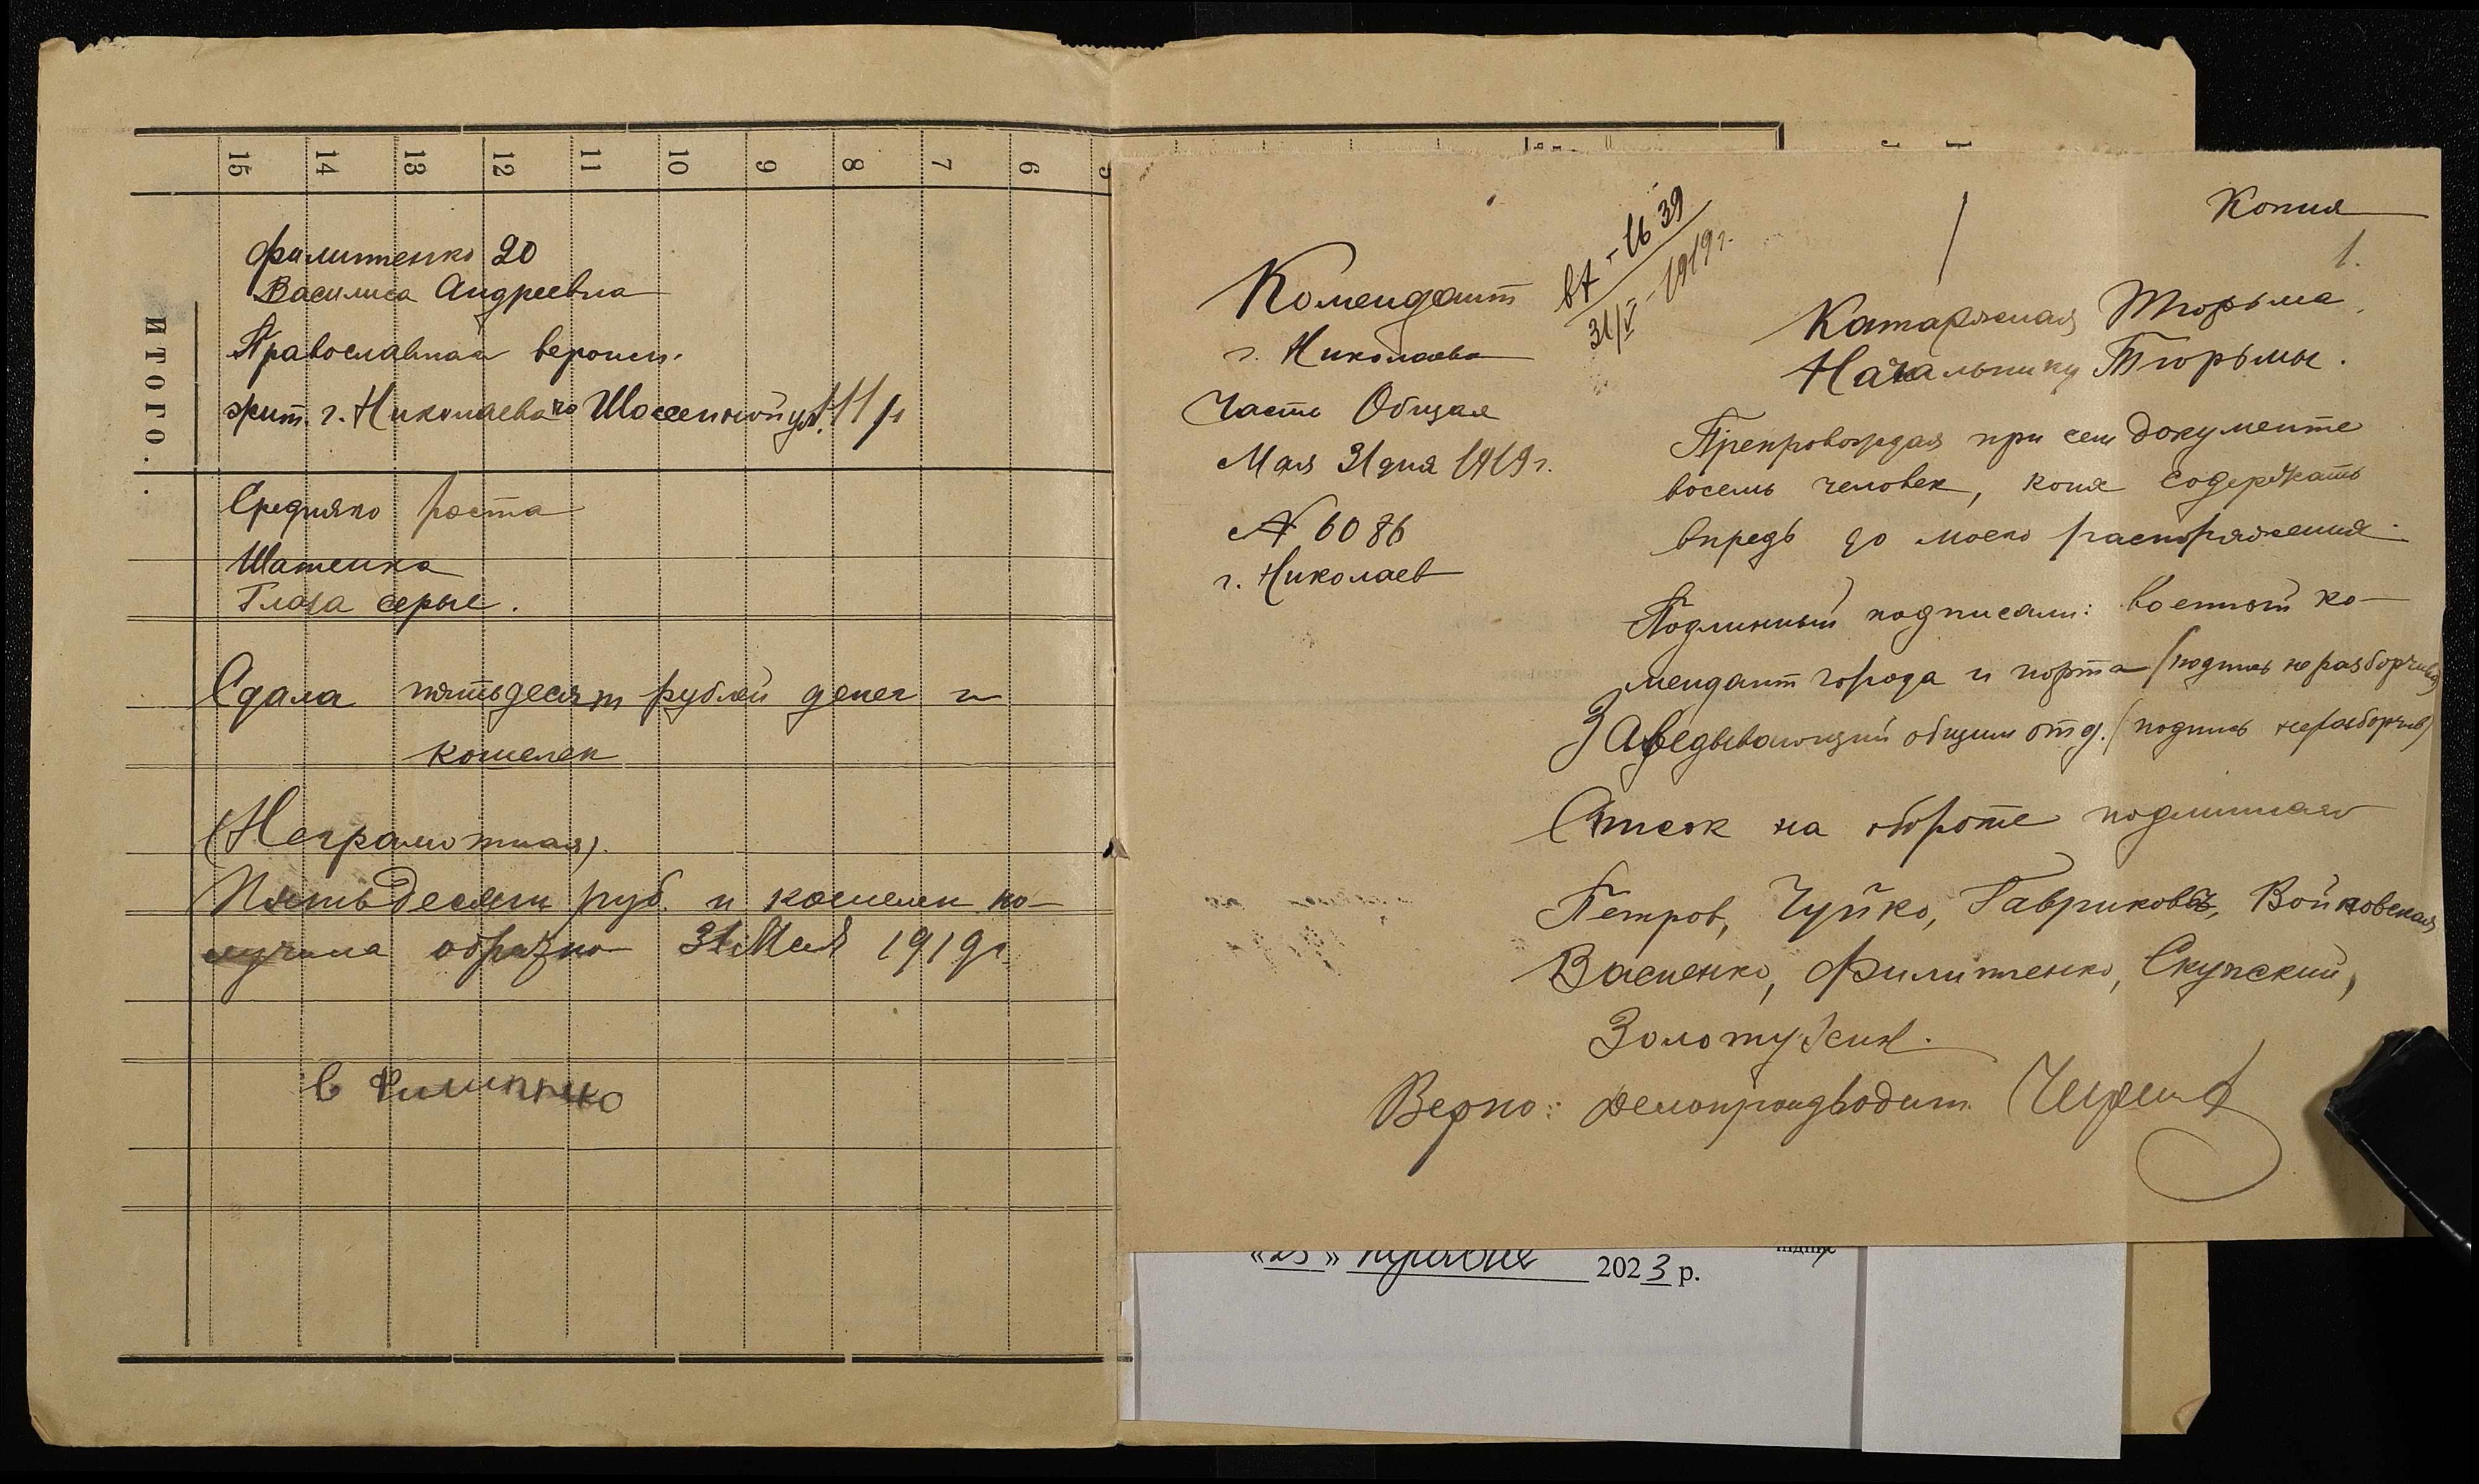 15 14 13 12 11 10 9 8 7 6 5
ИТОГО.
Филипенко 20
Василиса Андреевна
Православная вероисп.
жит. г. Николаева по Шоссейной ул.
Средняго роста
Шатенка
Глаза серые.
Сдала пятьдесят рублей денег и
кошелек
(Неграмотная).
Пятьдесят руб. и кошелек по-
лучила обратно 31 Мая 1919 г.
В Филипенко
Копия
1.
31/V - 1919 г.
Комендант
г. Николаева
Часть Общая
Мая 31 дня 1919 г.
№ 6086
г. Николаев
Катаржная Тюрьма.
Начальнику Тюрьмы.
Препровождая при сем документе
восемь человек, коих содержать
впредь до моего распоряжения.
Подлинный подписали: военный ко-
мендант города и порта (подпись неразборчива)
Заведывающий общим отд. (подпись неразборчив)
Список на обороте подлинаго
Петров, Чуйко, Гавриков, Войковская
Васиенко, Филипенко, Скупский,
Золотухин.
Верно: Делопроизводит.
«23» травня 2023 р.
підпис